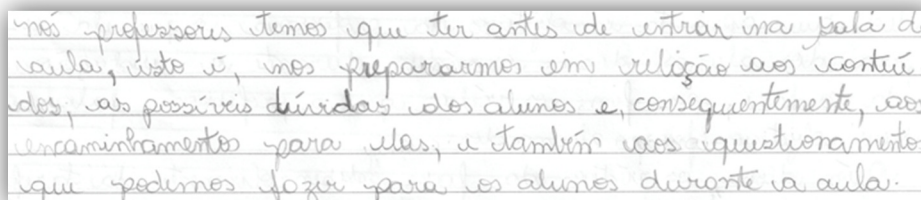 nós professores temos que ter antes de entrar na sala d
aula, isto é, nos prepararmos em relação aos conteú
dos, as possíveis dúvidas dos alunos e, consequentemente, ao
encaminhamentos para elas, e também aos questionamento
que podemos fazer para os alunos durante a aula.